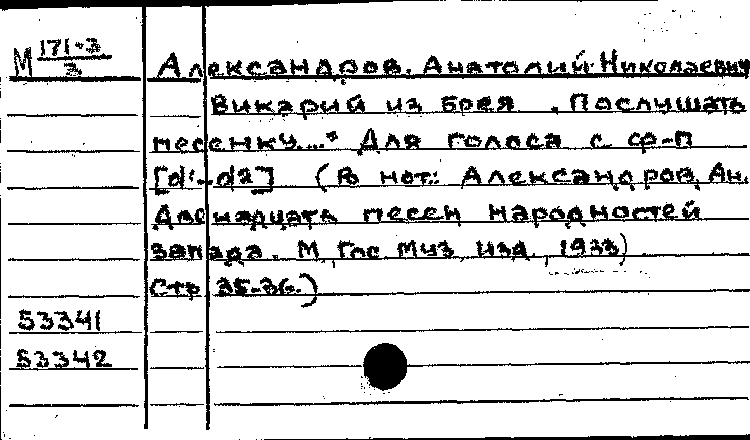 М 171-3/3
Александров, Анатолий Николаевич
Викарий из Брея. „Послушать
песенку...“ Для голоса с ср-п
[d¹-d2] (В нот.: Александров, Ан.
Двенадцать песен народностей
запада. М., Гос. Муз. изд., 1933)
Стр. 35-36.)
53341
53342